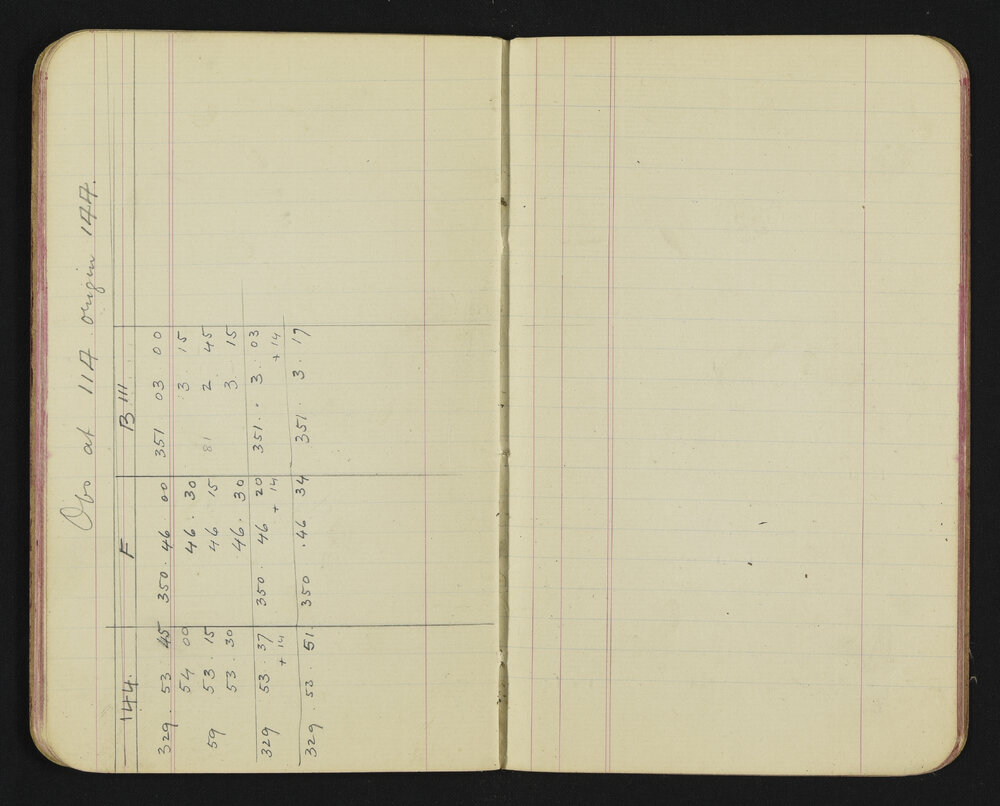 Obs at 114 origin 144.
144. F B III
329 . 53 45 350 . 46 00 351 03 00
54 00 46 . 30 3 . 15
59 53 . 15 46 15 81 2 . 45
53 . 30 46 . 30 3 15
329 53 . 37 350 . 46 20 351 . . 3 . 03
+ 14 + 14 + 14
329 . 53 . 51. 350 . 46 34 351 . 3 . 17